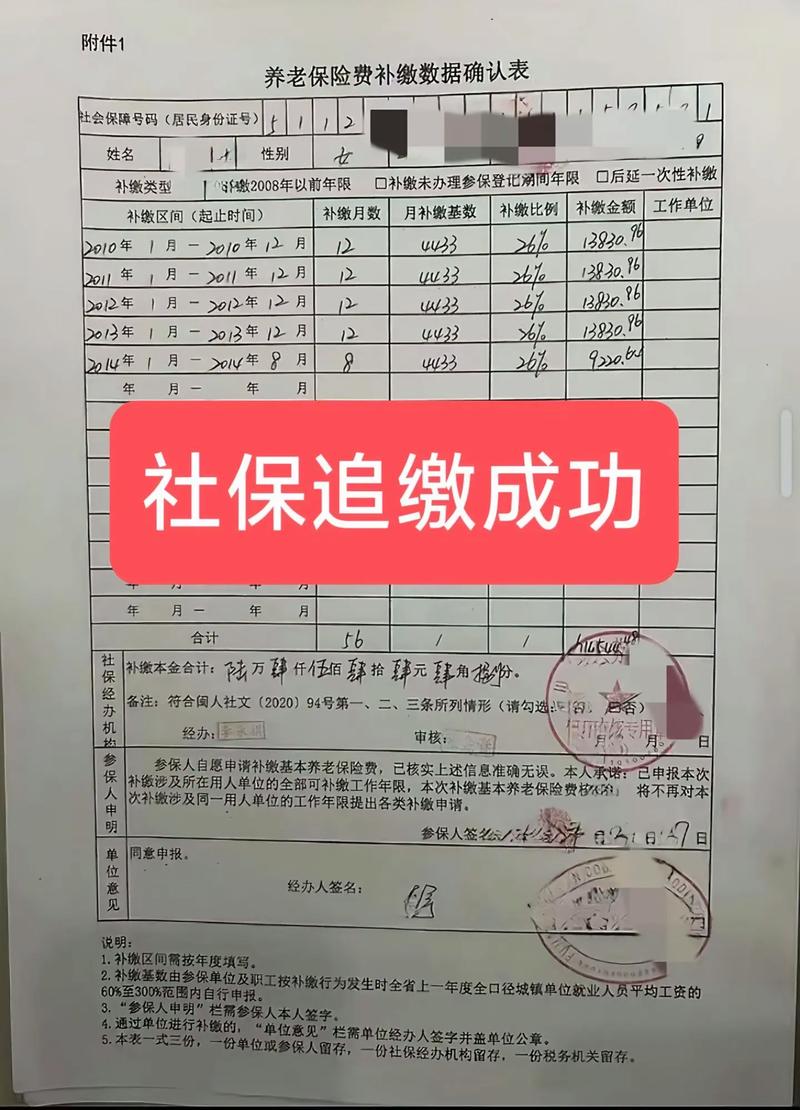 附件1
养老保险费补缴数据确认表
社会保障号码（居民身份证号） 5 1 1 2
姓名 性别 女
补缴类型 补缴2008年以前年限 □补缴未办理参保登记期间年限 □后延一次性补缴
补缴区间（起止时间） 补缴月数 月补缴基数 补缴比例 补缴金额 工作单位
2010年 1月 — 2010年 12月 12 4433 26% 13830.96
2011年 1月 — 2011年 12月 12 4433 26% 13830.96
2012年 1月 — 2012年 12月 12 4433 26% 13830.96
2013年 1月 — 2013年 12月 12 4433 26% 13830.96
2014年 1月 — 2014年 8月 8 4433 26% 9220.64
年 月 — 年 月
社保追缴成功
年 月 — 年 月
年 月 — 年 月
合计 56 / / 64544.48
社保经办机构
补缴本金合计：陆万肆仟伍佰肆拾肆元肆角捌分。
备注：符合闽人社文〔2020〕94号第一、二、三条所列情形（请勾选：
经办： 审核：
月 日
参保人申明
参保人自愿申请补缴基本养老保险费，已核实上述信息准确无误。本人承诺：已申报本次
补缴涉及所在用人单位的全部可补缴工作年限，本次补缴基本养老保险费 将不再对本
次补缴涉及同一用人单位的工作年限提出各类补缴申请。
参保人签名 月 日
单位意见
同意申报。
经办人签名：
说明：
1. 补缴区间需按年度填写。
2. 补缴基数由参保单位及职工按补缴行为发生时全省上一年度全口径城镇单位就业人员平均工资的
60%至300%范围内自行申报。
3. “参保人申明”栏需参保人本人签字。
4. 通过单位进行补缴的，“单位意见”栏需单位经办人签字并盖单位公章。
5. 本表一式三份，一份单位或参保人留存，一份社保经办机构留存，一份税务机关留存。